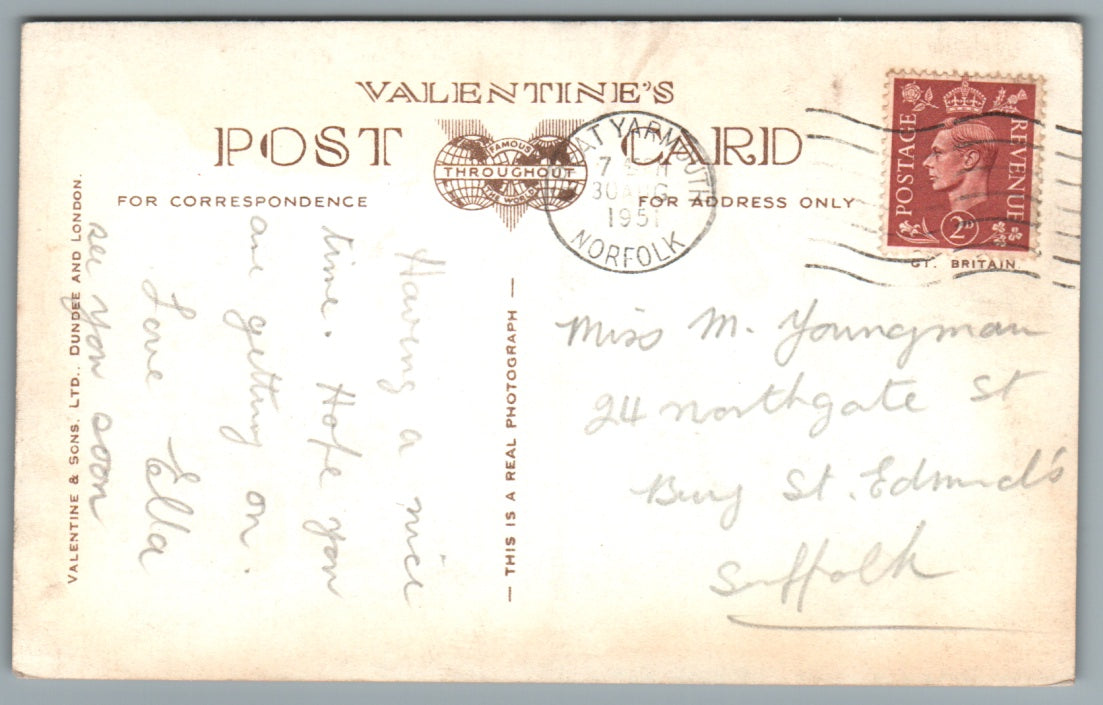 VALENTINE'S
POST CARD
FAMOUS
THROUGHOUT
THE WORLD
FOR CORRESPONDENCE
FOR ADDRESS ONLY
AT YARMOUTH
30 AUG
1951
NORFOLK
POSTAGE
REVENUE
2D
GT. BRITAIN.
Having a nice
time. Hope you
are getting on.
Love Ella
see you soon
VALENTINE & SONS. LTD., DUNDEE AND LONDON.
— THIS IS A REAL PHOTOGRAPH —
Miss M. Youngman
24 Northgate St
Bury St. Edmund's
Suffolk